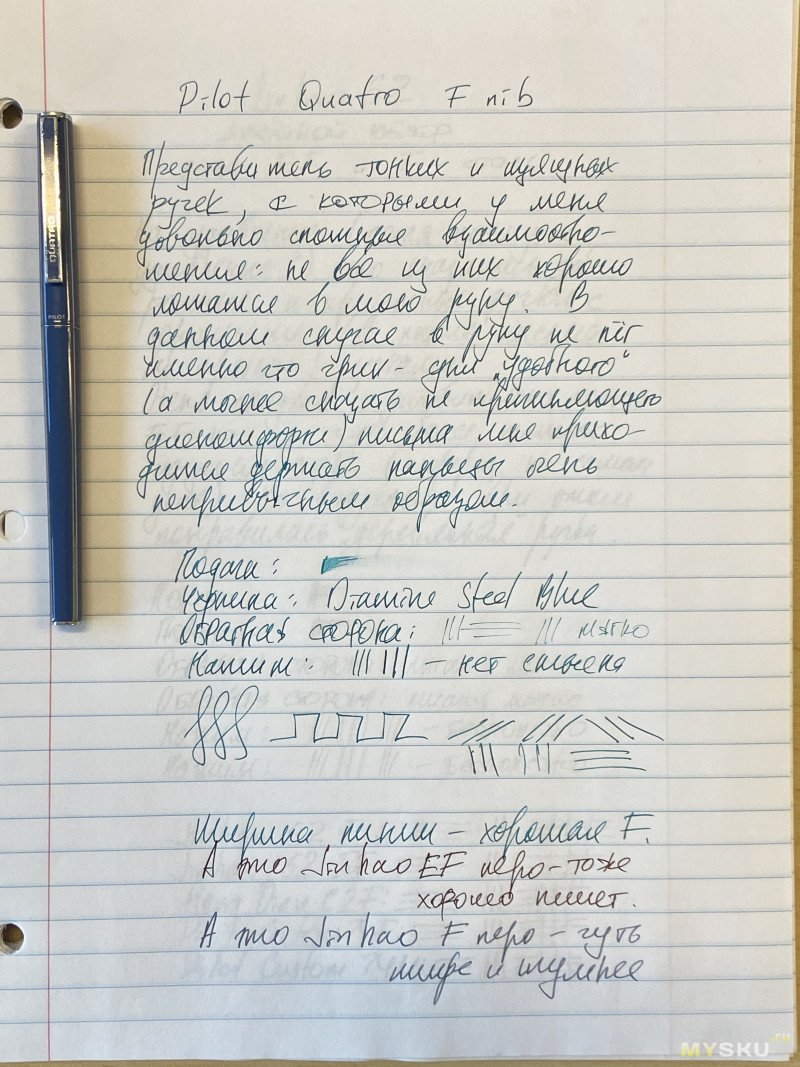 Pilot Quatro F nib
Представитель тонких и изящных
ручек, с которыми у меня
довольно сложные взаимоотно-
шения: не все из них хорошо
ложатся в мою руку. В
данном случае в руку не лёг
именно что грип - для „удобного“
(а точнее сказать не причиняющего
дискомфорта) письма мне прихо-
дится держать пальцы очень
непривычным образом.
Подача:
Чернила: Diamine Steel Blue
Обратная сторона: мягко
Нажим: - нет смысла
Ширина линии - хорошая F.
А это Jinhao EF перо - тоже
хорошо пишет.
А это Jinhao F перо - чуть
шире и шумнее
QUATRO
PILOT
MYSKU.ru